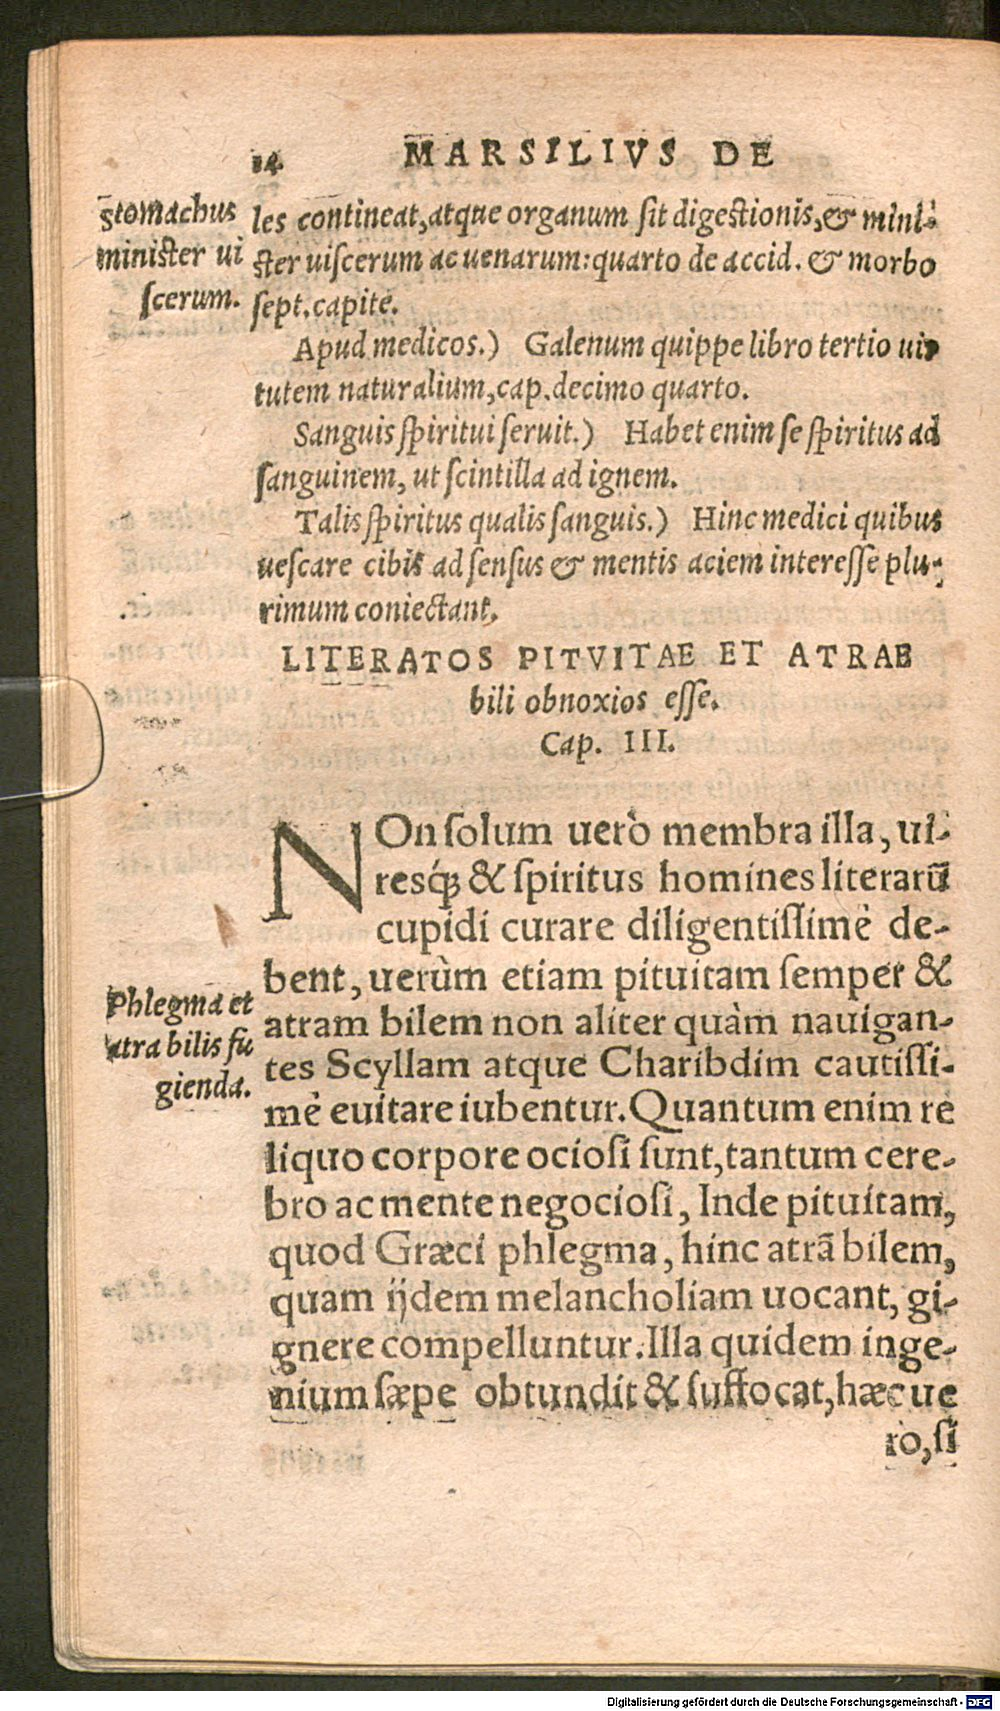 14 MARSILIVS DE
stomachus
minister ui
scerum.
les contineat, atque organum sit digestionis, & mini-
ster uiscerum ac uenarum: quarto de accid. & morbo
sept. capite.
Apud medicos.) Galenum quippe libro tertio uir
tutem naturalium, cap. decimo quarto.
Sanguis spiritui seruit.) Habet enim se spiritus ad
sanguinem, ut scintilla ad ignem.
Talis spiritus qualis sanguis.) Hinc medici quibus
uescare cibis ad sensus & mentis aciem interesse plu-
rimum coniectant.
LITERATOS PITVITAE ET ATRAE
bili obnoxios esse.
Cap. III.
NOn solum uerò membra illa, ui-
resq́; & spiritus homines literarũ
cupidi curare diligentissimè de-
bent, uerùm etiam pituitam semper &
atram bilem non aliter quàm nauigan-
tes Scyllam atque Charibdim cautissi-
mè euitare iubentur. Quantum enim re
liquo corpore ociosi sunt, tantum cere-
bro ac mente negociosi, Inde pituitam,
quod Græci phlegma, hinc atrã bilem,
quam ijdem melancholiam uocant, gi-
gnere compelluntur. Illa quidem inge-
nium sæpe obtundit & suffocat, hæc ue
ro, si
Phlegma et
atra bilis fu
gienda.
Digitalisierung gefördert durch die Deutsche Forschungsgemeinschaft - DFG